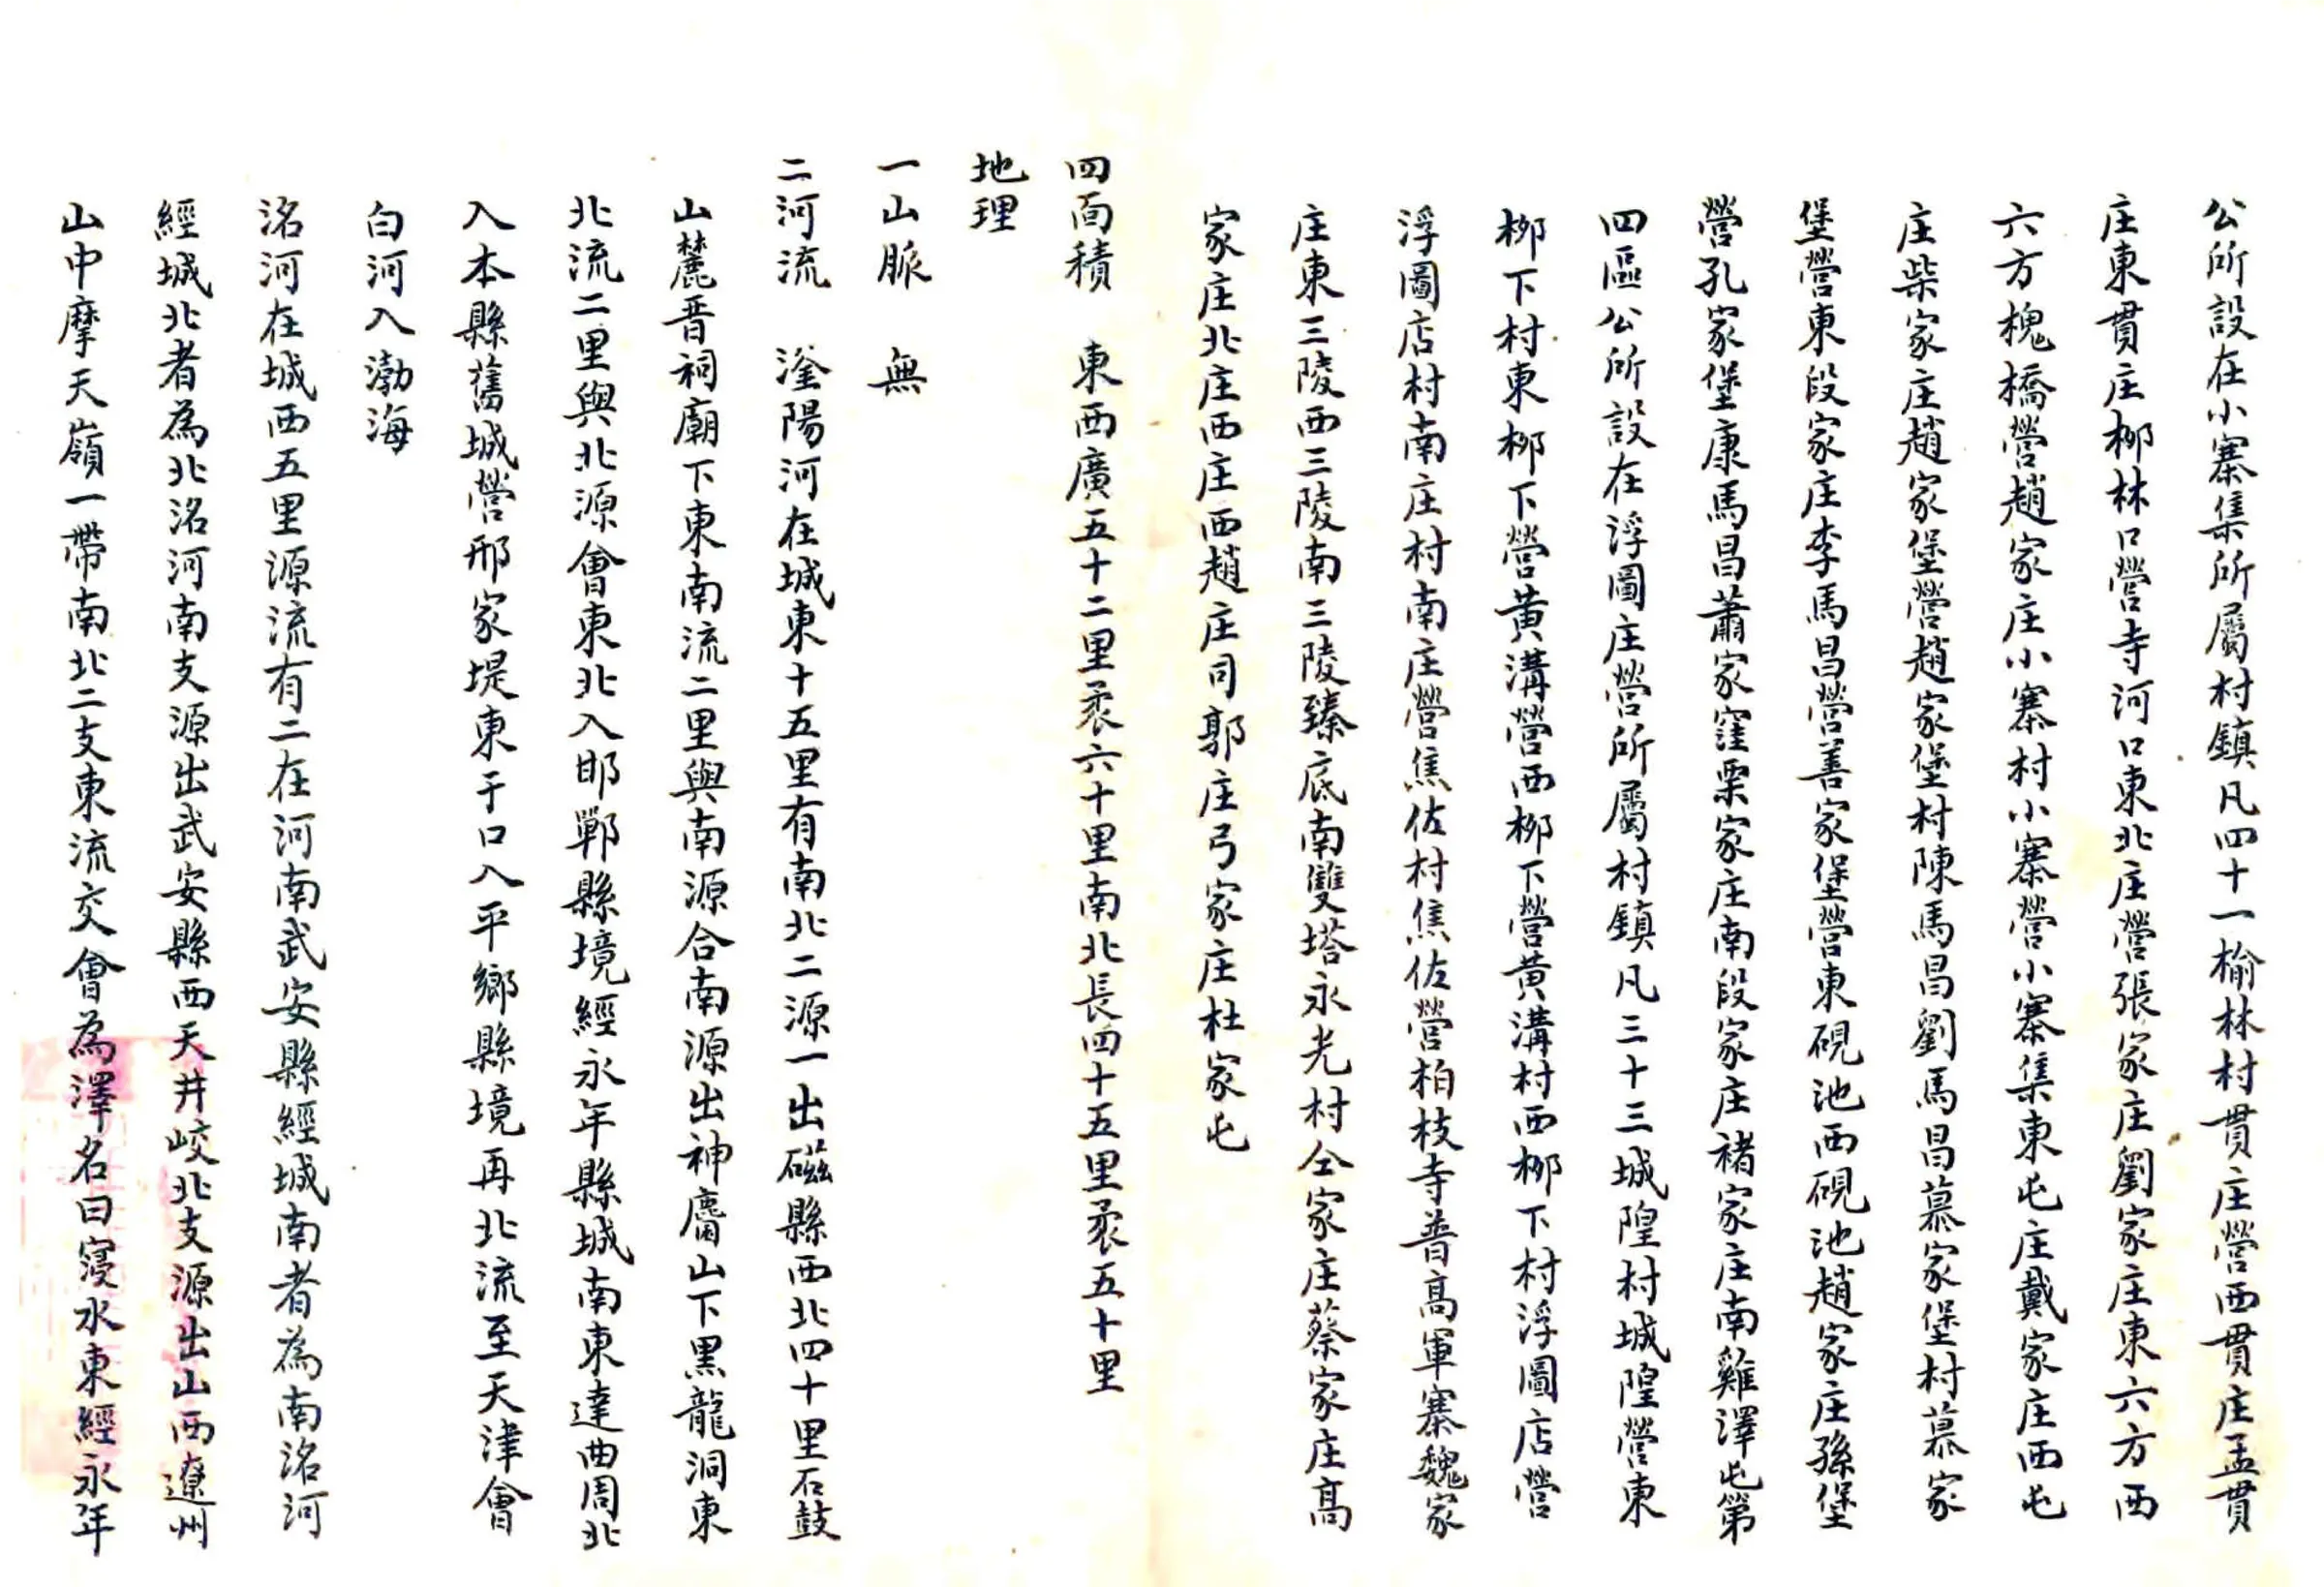 公所設在小寨集所屬村鎮凡四十一榆林村貫庄營西貫庄孟貫
庄東貫庄柳林口營寺河口東北庄營張家庄劉家庄東六方西
六方槐橋營趙家庄小寨村小寨營小寨集東屯庄戴家庄西屯
庄柴家庄趙家堡營趙家堡村陳馬昌劉馬昌慕家堡村慕家
堡營東段家庄李馬昌營善家堡營東硯池西硯池趙家庄孫堡
營孔家堡康馬昌蕭家窪栗家庄南段家庄褚家庄南雞澤屯第
四區公所設在浮圖庄營所屬村鎮凡三十三城隍村城隍營東
柳下村東柳下營黃溝營西柳下營黃溝村西柳下村浮圖店營
浮圖店村南庄村南庄營焦佐村焦佐營柏枝寺普高軍寨魏家
庄東三陵西三陵南三陵臻底南雙塔永光村仝家庄蔡家庄高
家庄北庄西庄西趙庄司郭庄弓家庄杜家屯
四面積 東西廣五十二里袤六十里南北長四十五里袤五十里
地理
一山脈 無
二河流 滏陽河在城東十五里有南北二源一出磁縣西北四十里石鼓
山麓晋祠廟下東南流二里與南源合南源出神麕山下黑龍洞東
北流二里與北源會東北入邯鄲縣境經永年縣城南東達曲周北
入本縣舊城營邢家堤東于口入平鄉縣境再北流至天津會
白河入渤海
洺河在城西五里源流有二在河南武安縣經城南者為南洺河
經城北者為北洺河南支源出武安縣西天井峧北支源出山西遼州
山中摩天嶺一帶南北二支東流交會為澤名曰寖水東經永年